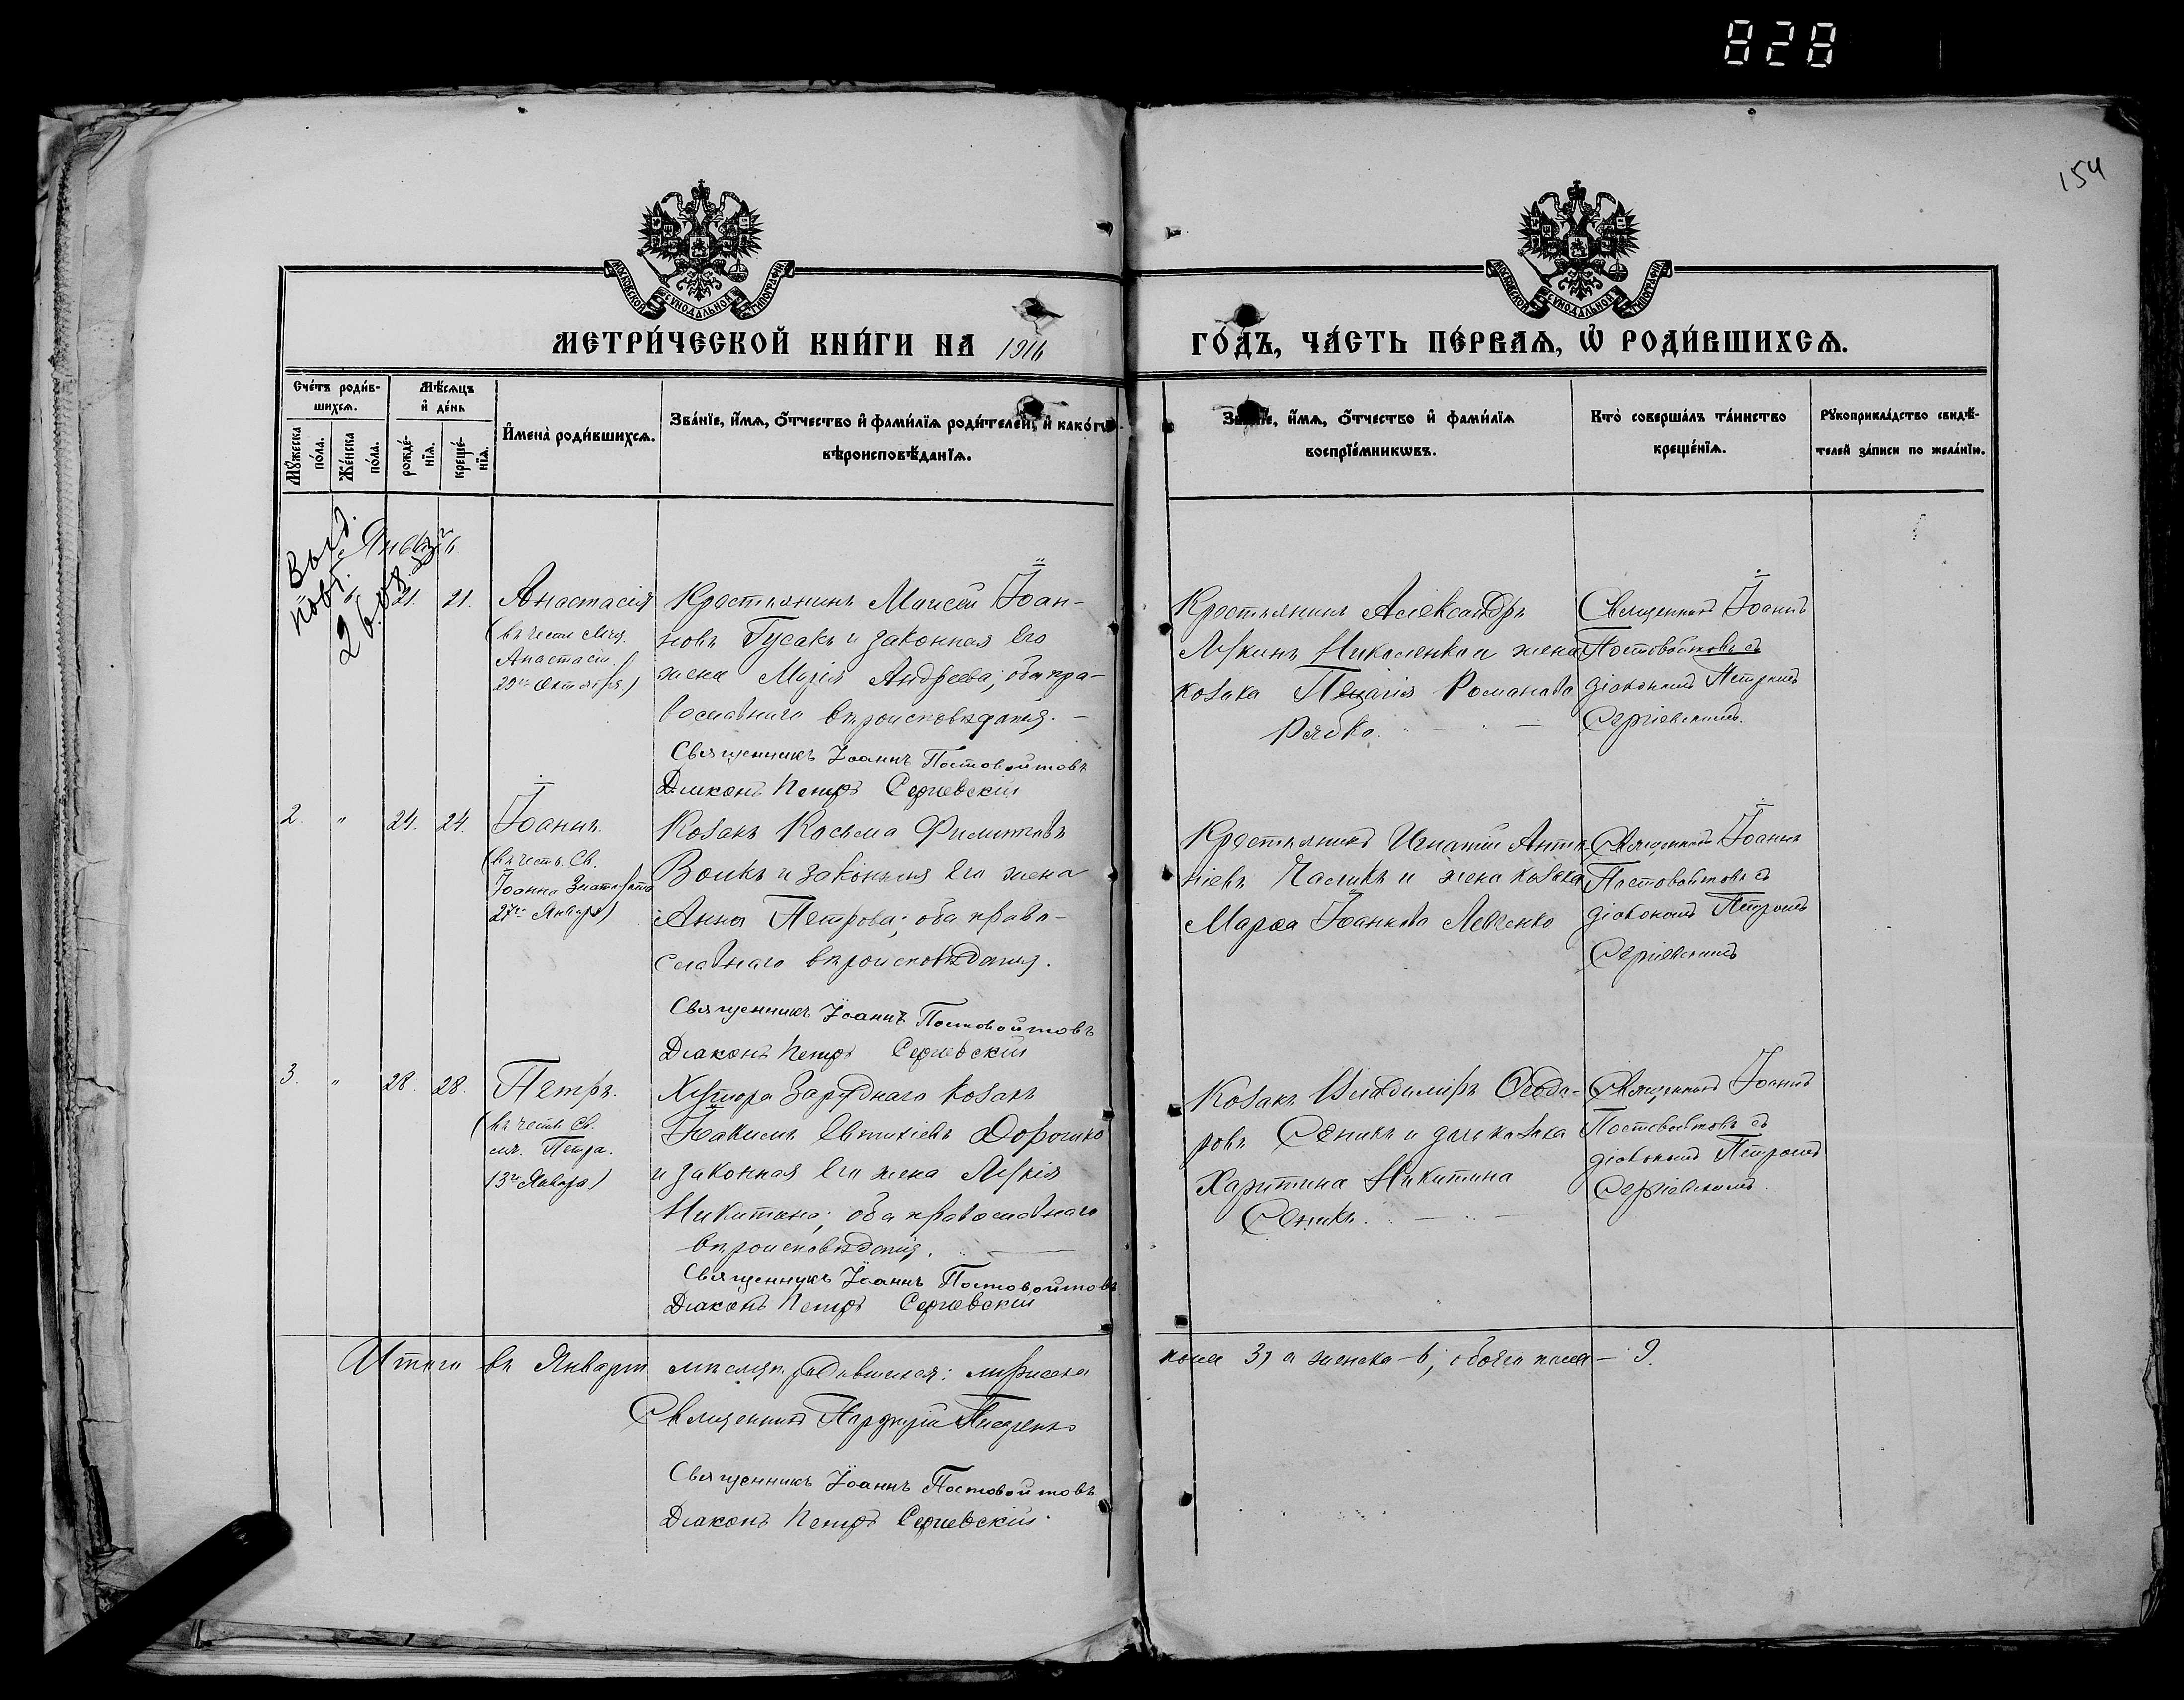 828
154
МОСКОВСКОЙ СѴНОДАЛЬНОЙ ТИПОГРАФІИ
МОСКОВСКОЙ СѴНОДАЛЬНОЙ ТИПОГРАФІИ
МЕТРИ́ЧЕСКОЙ КНИ́ГИ НА 1916
ГО́ДЪ, ЧА́СТЬ ПЕ́РВАѦ, Ѡ҆ РОДИ́ВШИХСѦ.
Сче́тъ роди́в-
шихсѧ.
Мꙋ́жеска по́ла.
Же́нска по́ла.
Мѣ́сѧцъ
и҆ де́нь
рожде́-
нїѧ.
креще́-
нїѧ.
И҆мена̀ роди́вшихсѧ.
Зва́нїе, и҆́мѧ, ѻ҆́тчество и҆ фами́лїѧ роди́телей, и҆ како́гѡ
вѣроисповѣ́данїѧ.
Зва́нїе, и҆́мѧ, ѻ҆́тчество и҆ фами́лїѧ
воспрїе́мникѡвъ.
Кто̀ соверша́лъ та́инство
креще́нїѧ.
Рꙋкоприкла́дство свидѣ́-
телей за́писи по жела́нїю.
Выд.
повт.
26.08.
" 6. 21. 21.
Анастасія
Анастасіи
29го Октября)
Крестьянинъ Моисей Іоан-
новъ Гусакъ и законная его
жена Марія Андреева; оба пра-
вославнаго вѣроисповѣданія. —
Священникъ Іоаннъ Постовойтовъ
Діаконъ Петръ Сергіевскій
Крестьянинъ Александръ
Лукинъ Николенко и жена
козака Пелагія Романова
Рябко.
Священникъ Іоаннъ
Постовойтовъ съ
діакономъ Петромъ
Сергіевскимъ.
2. " 24. 24.
Іоаннъ.
(въ честь Св.
Іоанна Златоуста
27го Января)
Козакъ Косьма Филипповъ
Волкъ и законная его жена
Анна Петрова; оба право-
славнаго вѣроисповѣданія.
Священникъ Іоаннъ Постовойтовъ
Діаконъ Петръ Сергіевскій
Крестьянинъ Игнатій Анто-
ніевъ Часникъ и жена козака
Марѳа Іоаннова Левченко
Священникъ Іоаннъ
Постовойтовъ съ
діакономъ Петромъ
Сергіевскимъ
3. " 28. 28.
Петръ.
(въ честь Св.
мч. Петра.
13го Января)
Хутора Заруднаго козакъ
Іоакимъ Евтихіевъ Дорошко
и законная его жена Лукія
Никитина; оба православнаго
вѣроисповѣданія.
Священникъ Іоаннъ Постовойтовъ
Діаконъ Петръ Сергіевскій
Козакъ Владиміръ Ѳеодо-
ровъ Сеникъ и дочь козака
Харитина Никитина
Сеникъ.
Священникъ Іоаннъ
Постовойтовъ съ
діакономъ Петромъ
Сергіевскимъ.
Итого въ Январѣ мѣсяцѣ родившихся: мужеска
пола 3, а женска — 6; обоего пола — 9.
Священникъ
Священникъ Іоаннъ Постовойтовъ
Діаконъ Петръ Сергіевскій